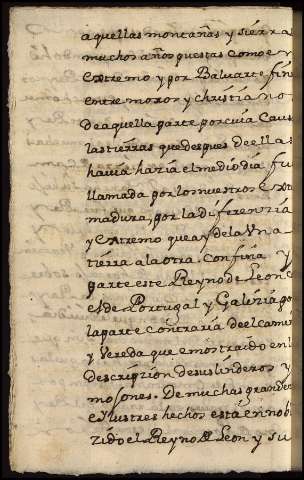 aquellas montañas y sierra
muchos años questas como e n
extremo y por Baluarte fin
entre moros y christianos
De aquella parte por cuia Caus
las tierras que despues de ellas
havia hazia el medio dia fu
llamada por los nuestros Ext
madura, por la diferenzia
y extremo que ay de la Vna
tierra a la otra. Confina y
parte este Reyno de Leon C
el de Portugal y Galizia po
la parte contraria de el cami
y Vereda que e mostrado en l
Descripzion de sus linderos y
mojones. De muchas grandes
e Ylustres hechos esta ennobl
zido el Reyno de Leon y su